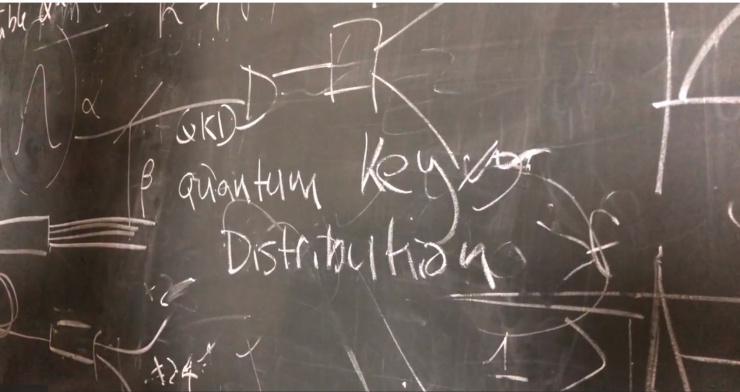 α
QKD
β
Quantum Key
Distribution
1